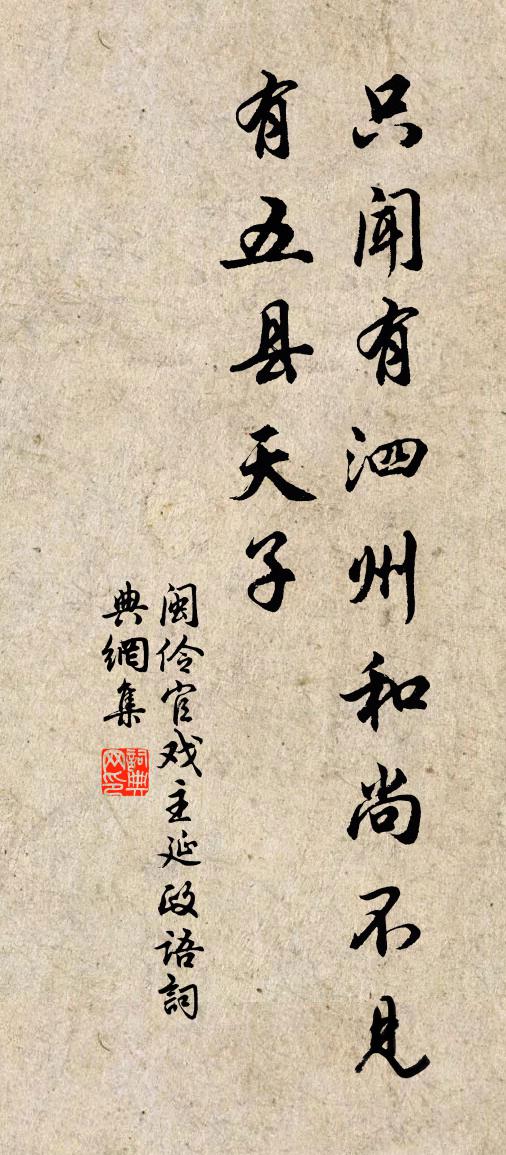 只闻有泗州和尚不见
有五县天子
闽伶官戏主延政语詞
典網集
詞典
网印